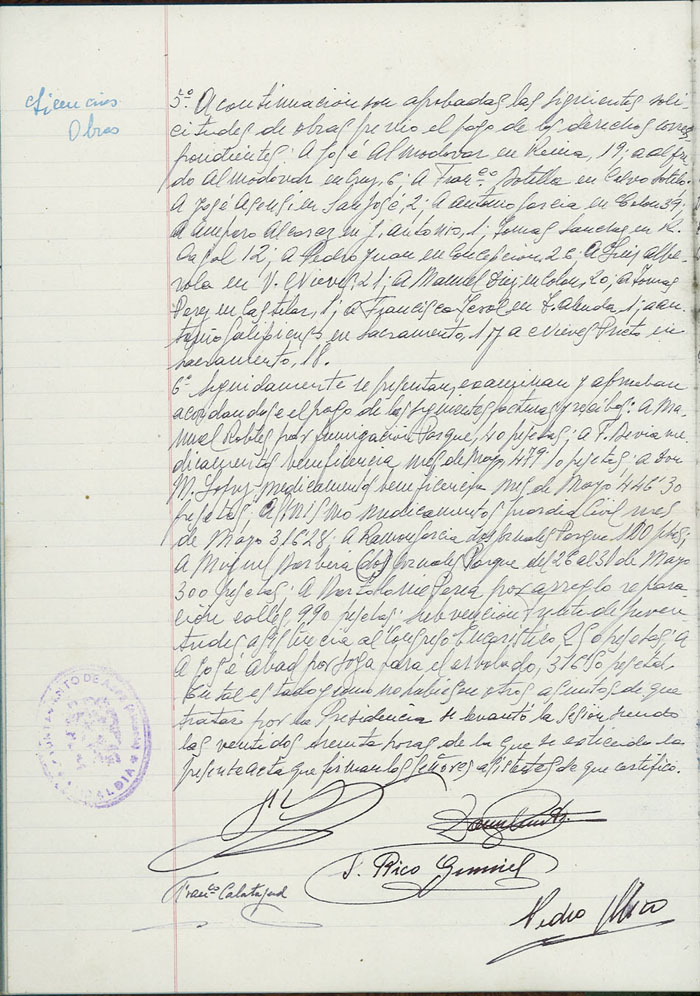 Licencias
Obras
5º. A continuacion son aprobadas las siguientes soli-
citudes de obras previo el pago de los derechos corres
pondientes: A José Almodovar en Reina, 19; a alfre
do Almodovar en Cruz, 6; A Franco. Botella en Calvo Sotelo
A José Asensi en San José, 2; A antonio Garcia en Colon 39;
a Amparo Alcaraz en J. Antonio, 1; Tomas Sanchez en R.
Cajal 12; a Pedro Juan en Concepcion, 26; a Luis Albe
rola en V. Nieves, 21; A Manuel Diez en Colon, 20; a Tomas
Perez en Castelar, 1; a Francisco en 1; a an
tonio en Sacramento, 17 a Nieves Prieto en
Sacramento, 18.
6º Seguidamente se presentan, examinan y aprueban
acordandose el pago de las siguientes facturas y recibos: A Ma-
nuel Robles por fumigación Parque, 40 pesetas; a F. me
dicamentos beneficencia mes de Mayo, 479'10 pesetas; a
M. Lopez, medicamentos beneficencia mes de Mayo 446'30
pesetas; Al mismo medicamentos Guardia Civil mes
de Mayo 316'25; a Ramon Garcia dos jornales Parque 100 ptas;
A Miguel Barberá (dos) jornales Parque del 26 al 31 de Mayo
300 pesetas; A Bartolome Perea por arreglo repara
ción calles, 990 pesetas; subvencion de juven
tudes asistencia al Congreso Eucaristico 250 pesetas; A
A José Abad por soga para el arbolado, 316'50 pesetas
En tal estado y como no hubiesen otros asuntos de que
tratar por la Presidencia se levantó la sesion siendo
las veintidos treinta horas de la que se extiende la
presente acta que firman los Señores asistentes de que certifico.
AYUNTAMIENTO DE ASPE (Alicante)
ALCALDIA
J. Rico
Franco. Calatayud
Pedro